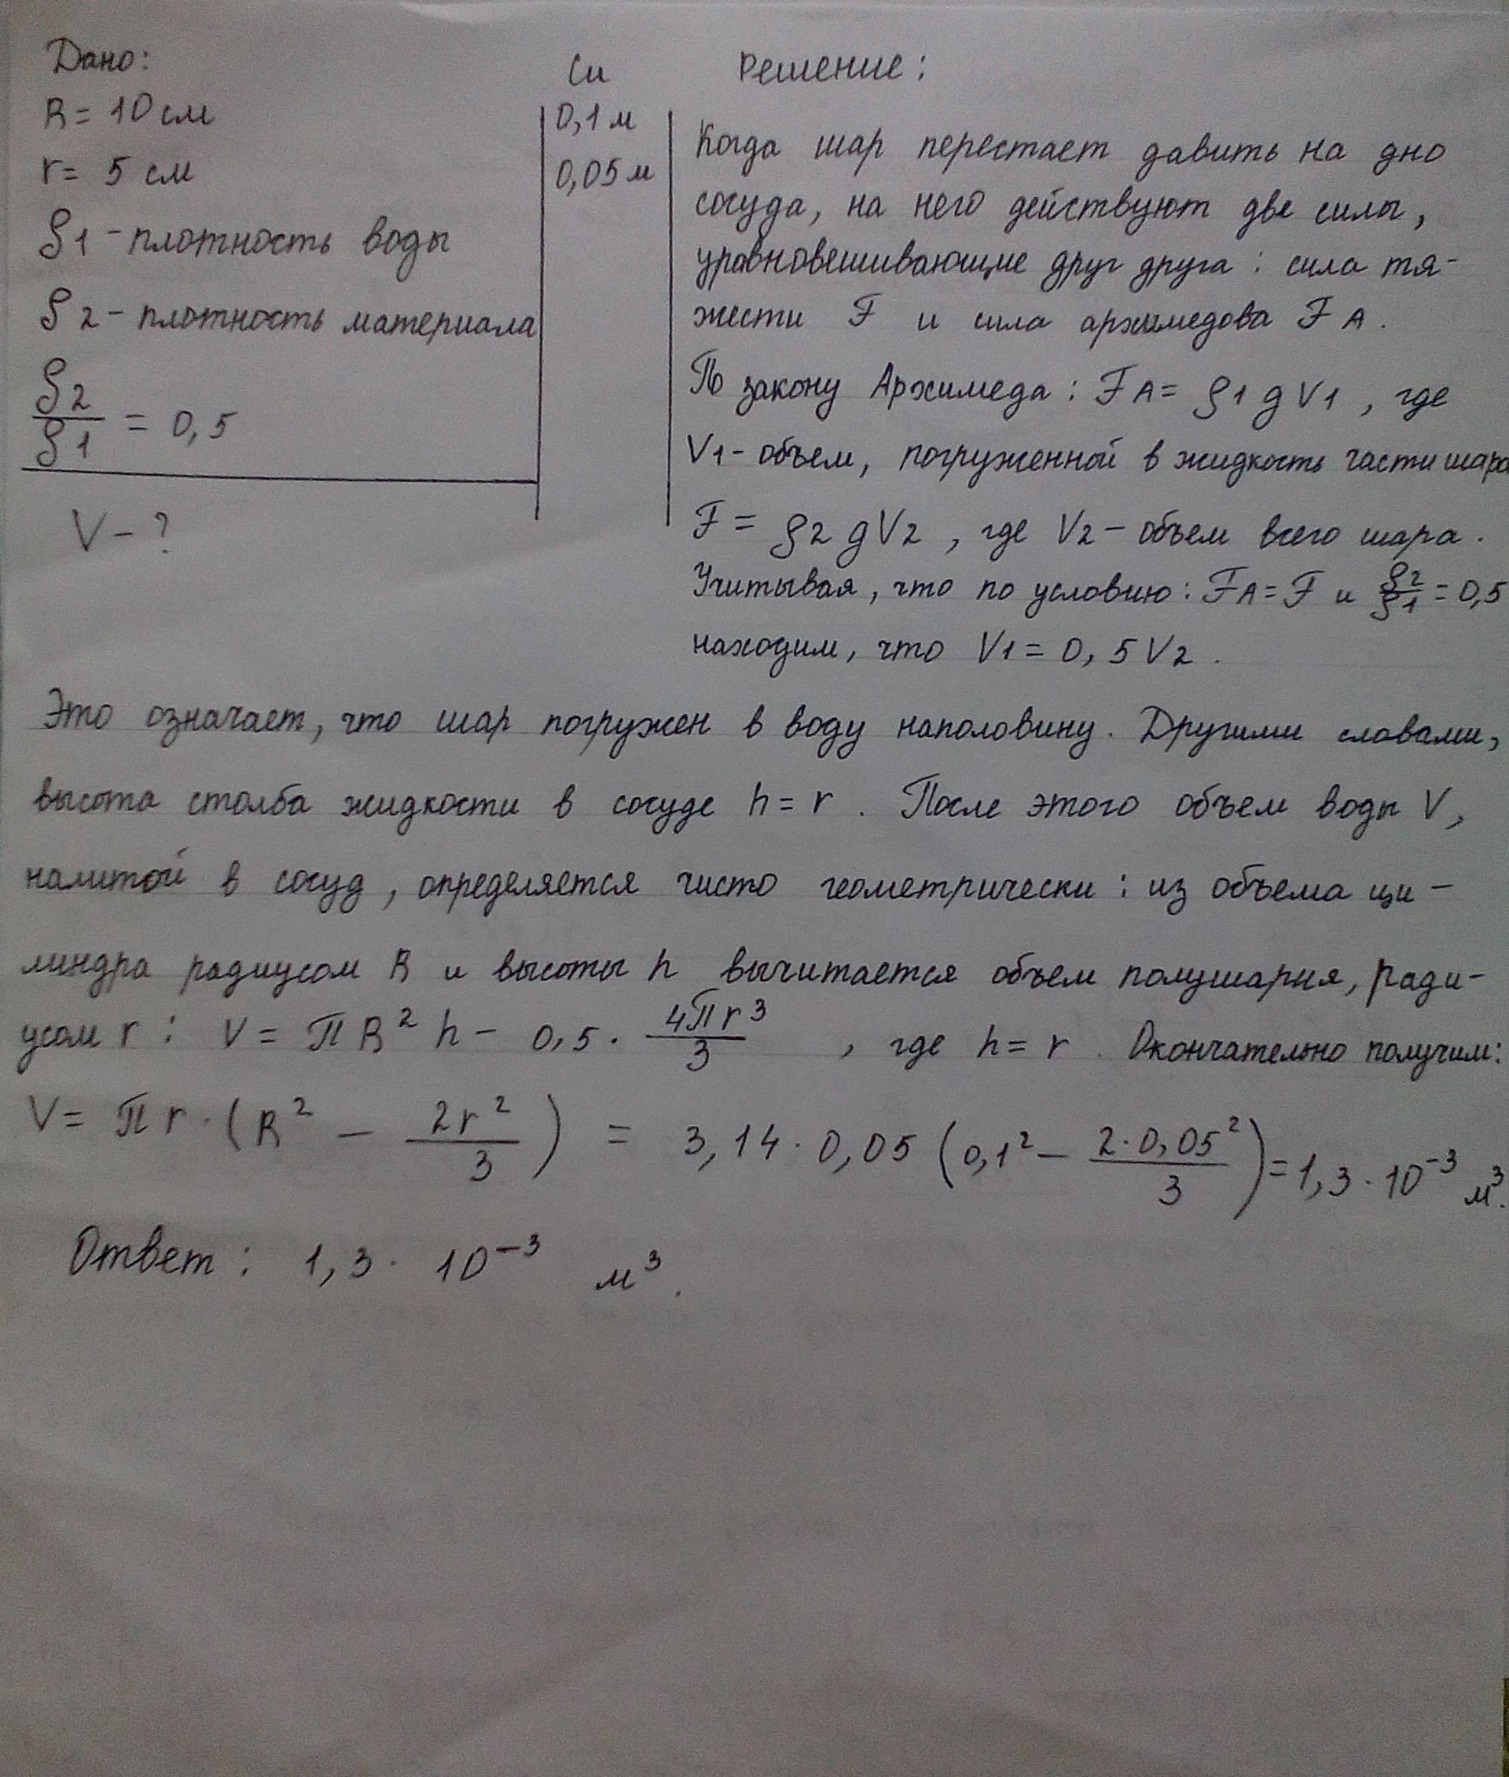 Дано:
R = 10 см
r = 5 см
ρ1 - плотность воды
ρ2 - плотность материала
ρ2/ρ1 = 0,5
V - ?
Си
0,1 м
0,05 м
Решение:
Когда шар перестает давить на дно
сосуда, на него действуют две силы,
уравновешивающие друг друга: сила тя-
жести F и сила архимедова FА.
По закону Архимеда: FА = ρ1 g V1, где
V1 - объем, погруженной в жидкость части шара
F = ρ2 g V2, где V2 - объем всего шара.
Учитывая, что по условию: FА = F и ρ2/ρ1 = 0,5
находим, что V1 = 0,5 V2.
Это означает, что шар погружен в воду наполовину. Другими словами,
высота столба жидкости в сосуде h = r. После этого объем воды V,
налитой в сосуд, определяется чисто геометрически: из объема ци-
линдра радиусом R и высоты h вычитается объем полушария, ради-
усом r: V = πR² h - 0,5 · 4πr³/3, где h = r. Окончательно получим:
V = πr · (R² - 2r²/3) = 3,14 · 0,05 (0,1² - 2·0,05²/3) = 1,3 · 10⁻³ м³.
Ответ: 1,3 · 10⁻³ м³.